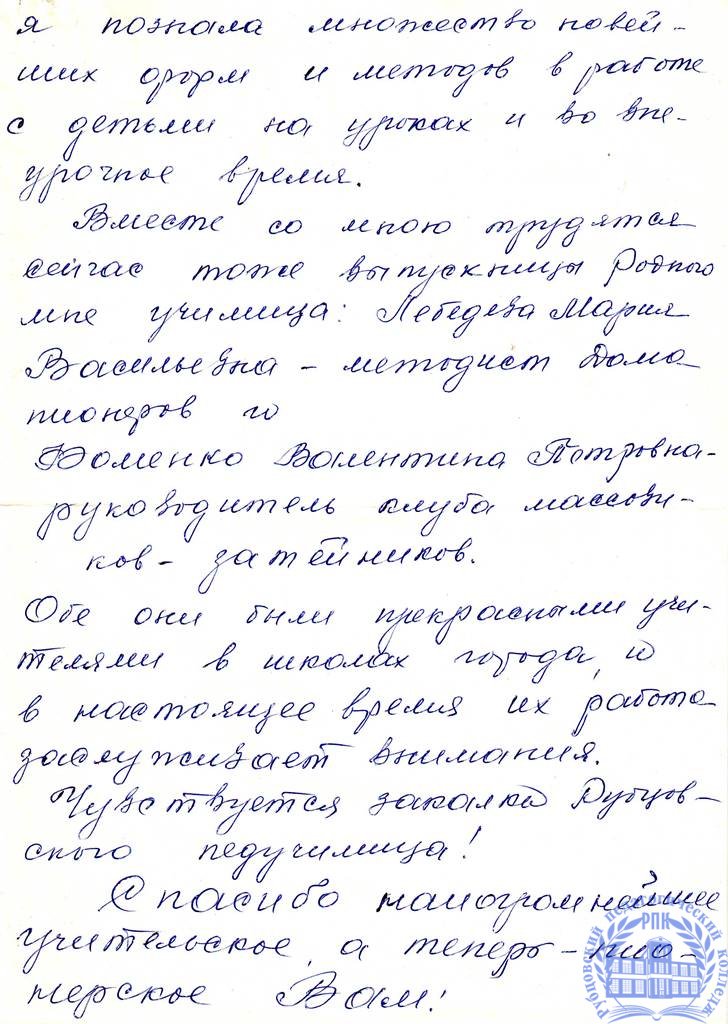 я познала множество новей-
ших форм и методов в работе
с детьми на уроках и во вне-
урочное время.
Вместе со мною трудятся
сейчас тоже выпускницы Родного
мне училища: Лебедева Мария
Васильевна - методист Дома
пионеров и
Фоменко Валентина Петровна-
руководитель клуба массови-
ков - затейников.
Обе они были прекрасными учи-
телями в школах города, и
в настоящее время их работа
заслуживает внимания.
Чувствуется закалка Рубцов-
ского педучилища!
Спасибо наиогромнейшее
учительское, а теперь - пио-
нерское Вам!
РУБЦОВСКИЙ ПЕДАГОГИЧЕСКИЙ КОЛЛЕДЖ
РПК